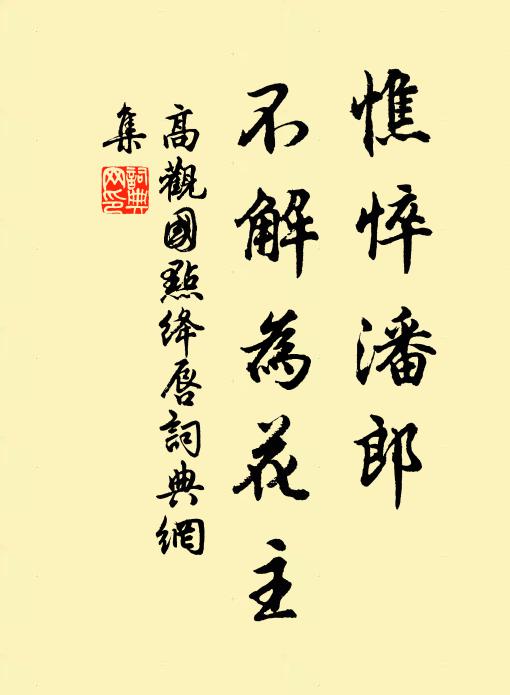 憔悴潘郎
不解為花主
高觀國點绛唇詞典網
集
詞典網印